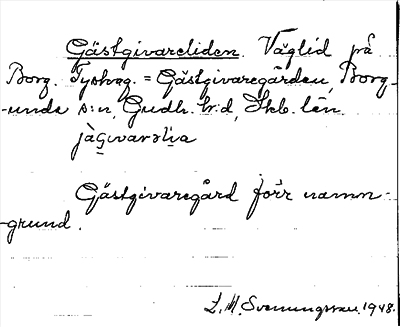 Gästgivareliden. Väglid på
Borg. Tyskag. = Gästgivaregården, Borg-
-unda s:n, Gudh. h:d, Skb. län.
jàgivarəlia
Gästgivaregård förr namn-
-grund.
L. M. Svenungsson. 1948.